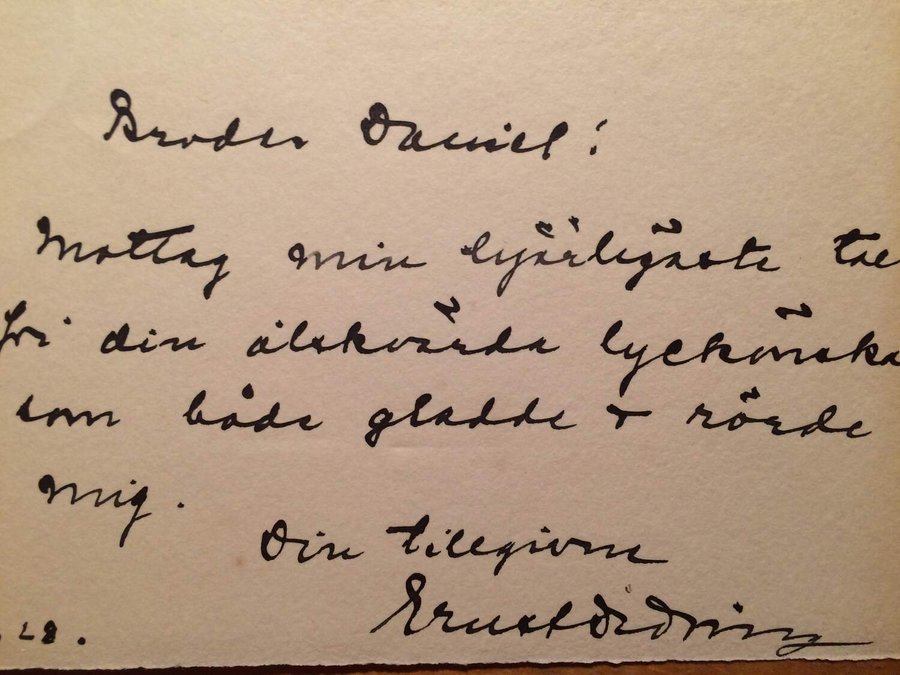 Broder Daniel!
Mottag min hjärligaste tac
för din älskvärda lyckönska
som både gladde + rörde
mig.
Din tillgivne
Ernst
28.